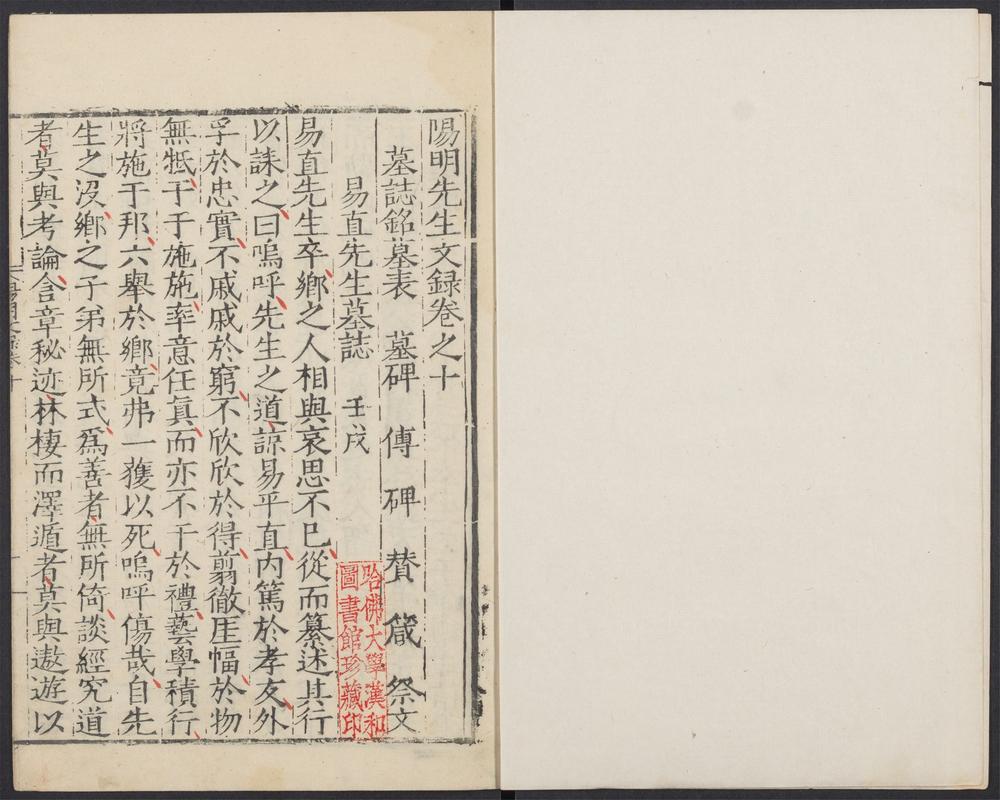 陽明先生文録卷之十
墓誌銘墓表　墓碑　傳　碑　賛　箴　祭文
易直先生墓誌　壬戌
易直先生卒鄉之人相與哀思不巳從而纂述其行
以誄之曰嗚呼先生之道諒易平直内篤於孝友外
孚於忠實不戚戚於窮不欣欣於得翦徹厓幅於物
無牴于于施施率意任眞而亦不干於禮藝學積行
將施于邦六舉於鄉竟弗一獲以死嗚呼傷哉自先
生之沒鄉之子弟無所式爲善者無所倚談經究道
者莫與考論含章秘迹林棲而澤遁者莫與遨遊以
哈佛大學漢和
圖書館珍藏印